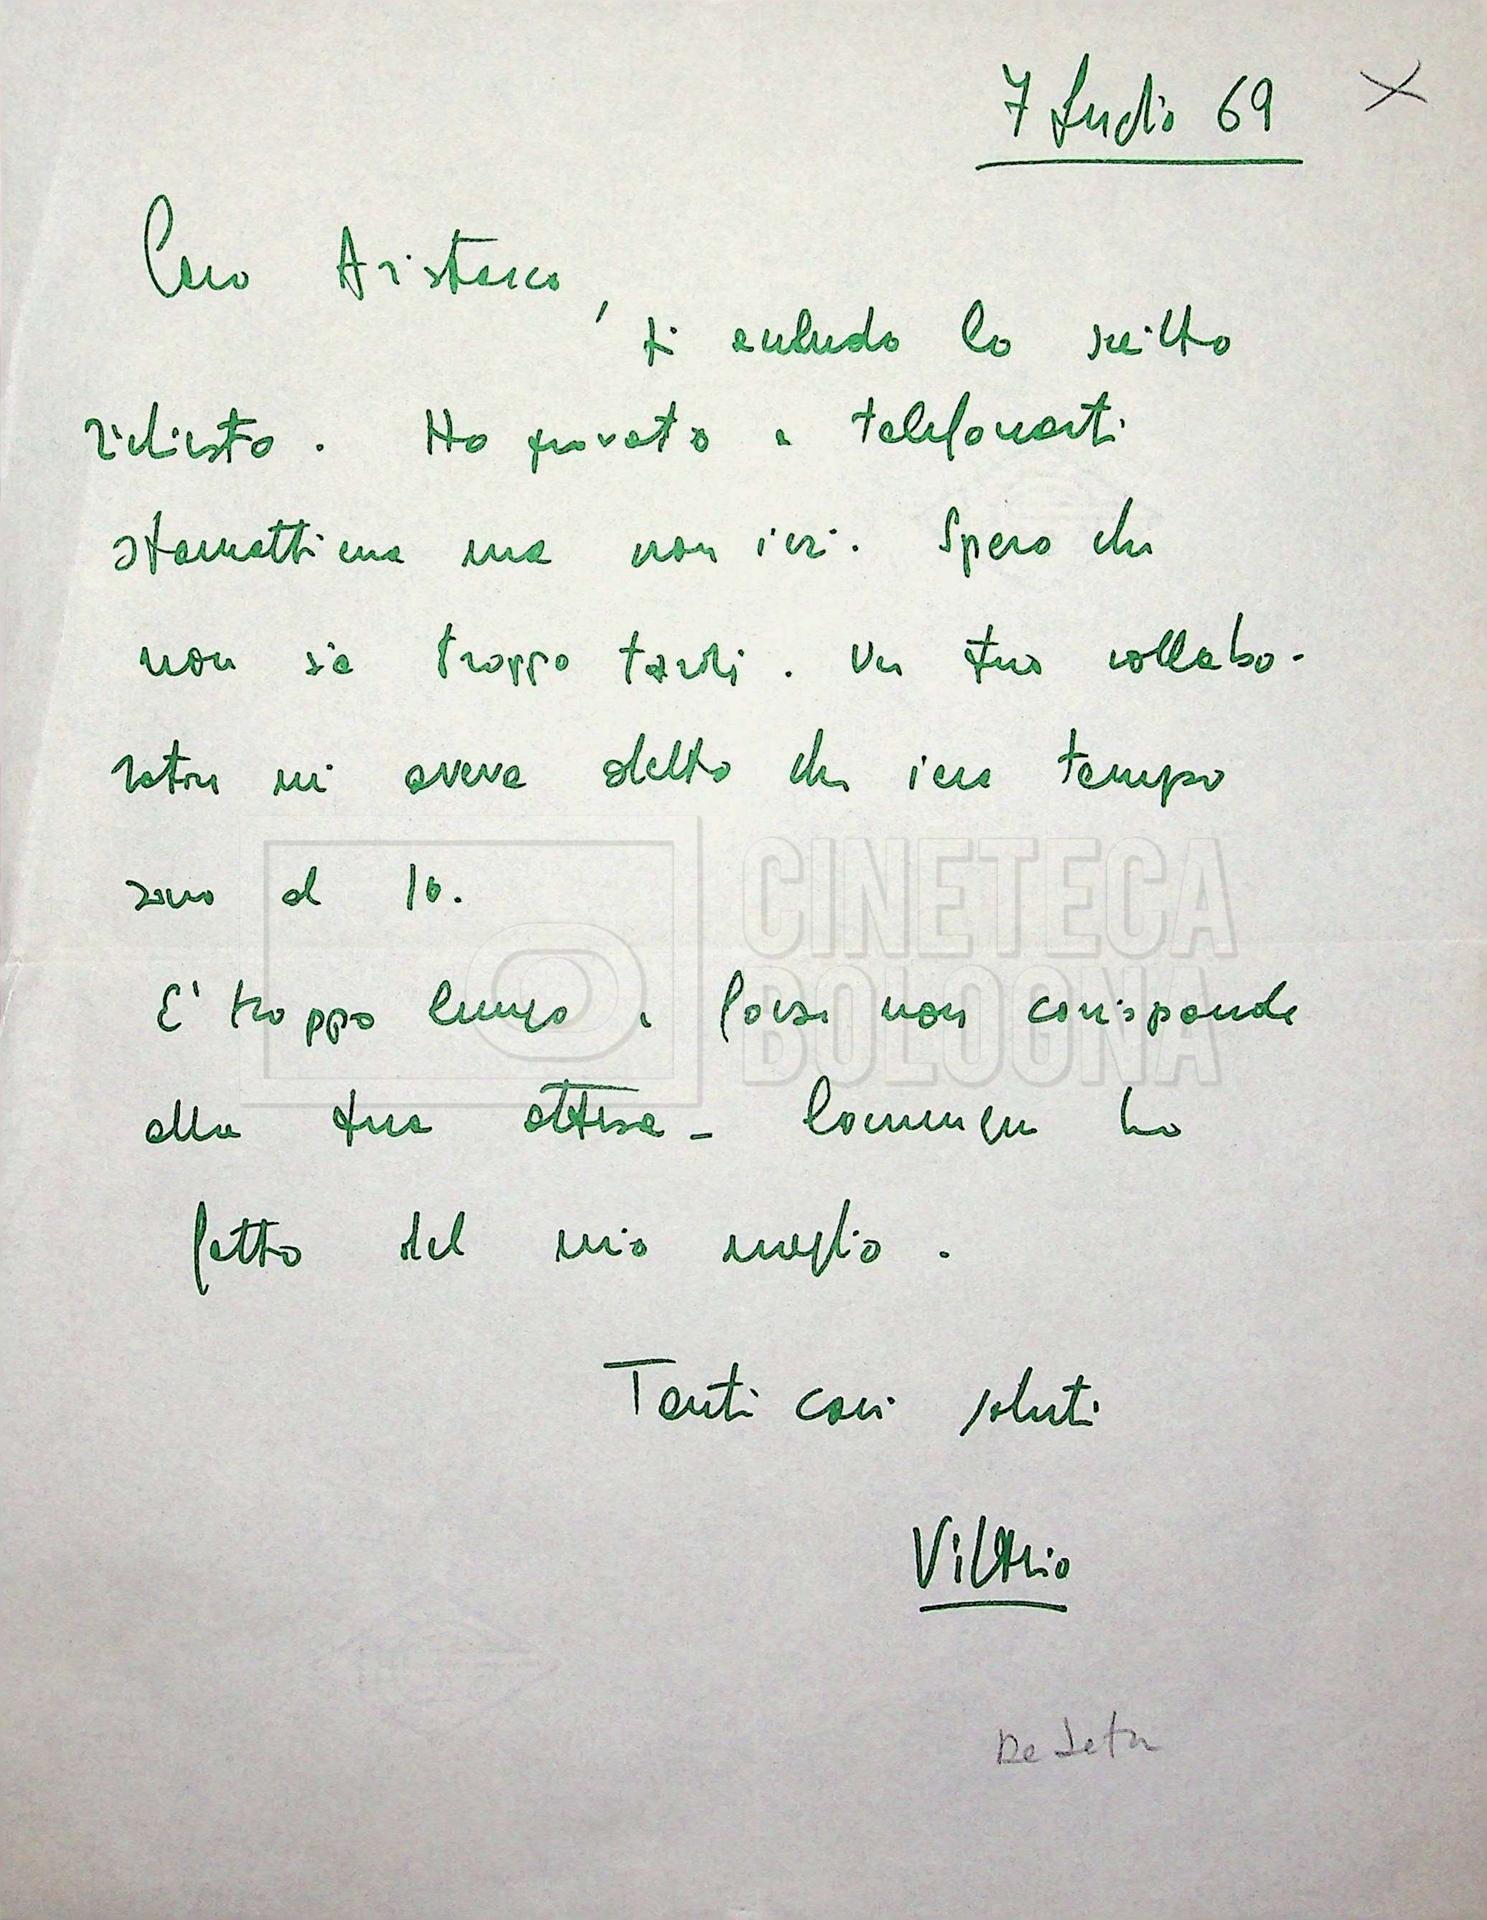 7 Luglio 69
Caro Aristarco,
ti accludo lo scritto
richiesto. Ho provato a telefonarti
stamattina ma non ieri. Spero che
non sia troppo tardi. Un tuo collabo-
ratore mi aveva detto che c'era tempo
sino al 10.
E' troppo lungo e forse non corrisponde
alla tua attesa – Comunque ho
fatto del mio meglio.
Tanti cari saluti
Vittorio
De Seta
CINETECA
BOLOGNA